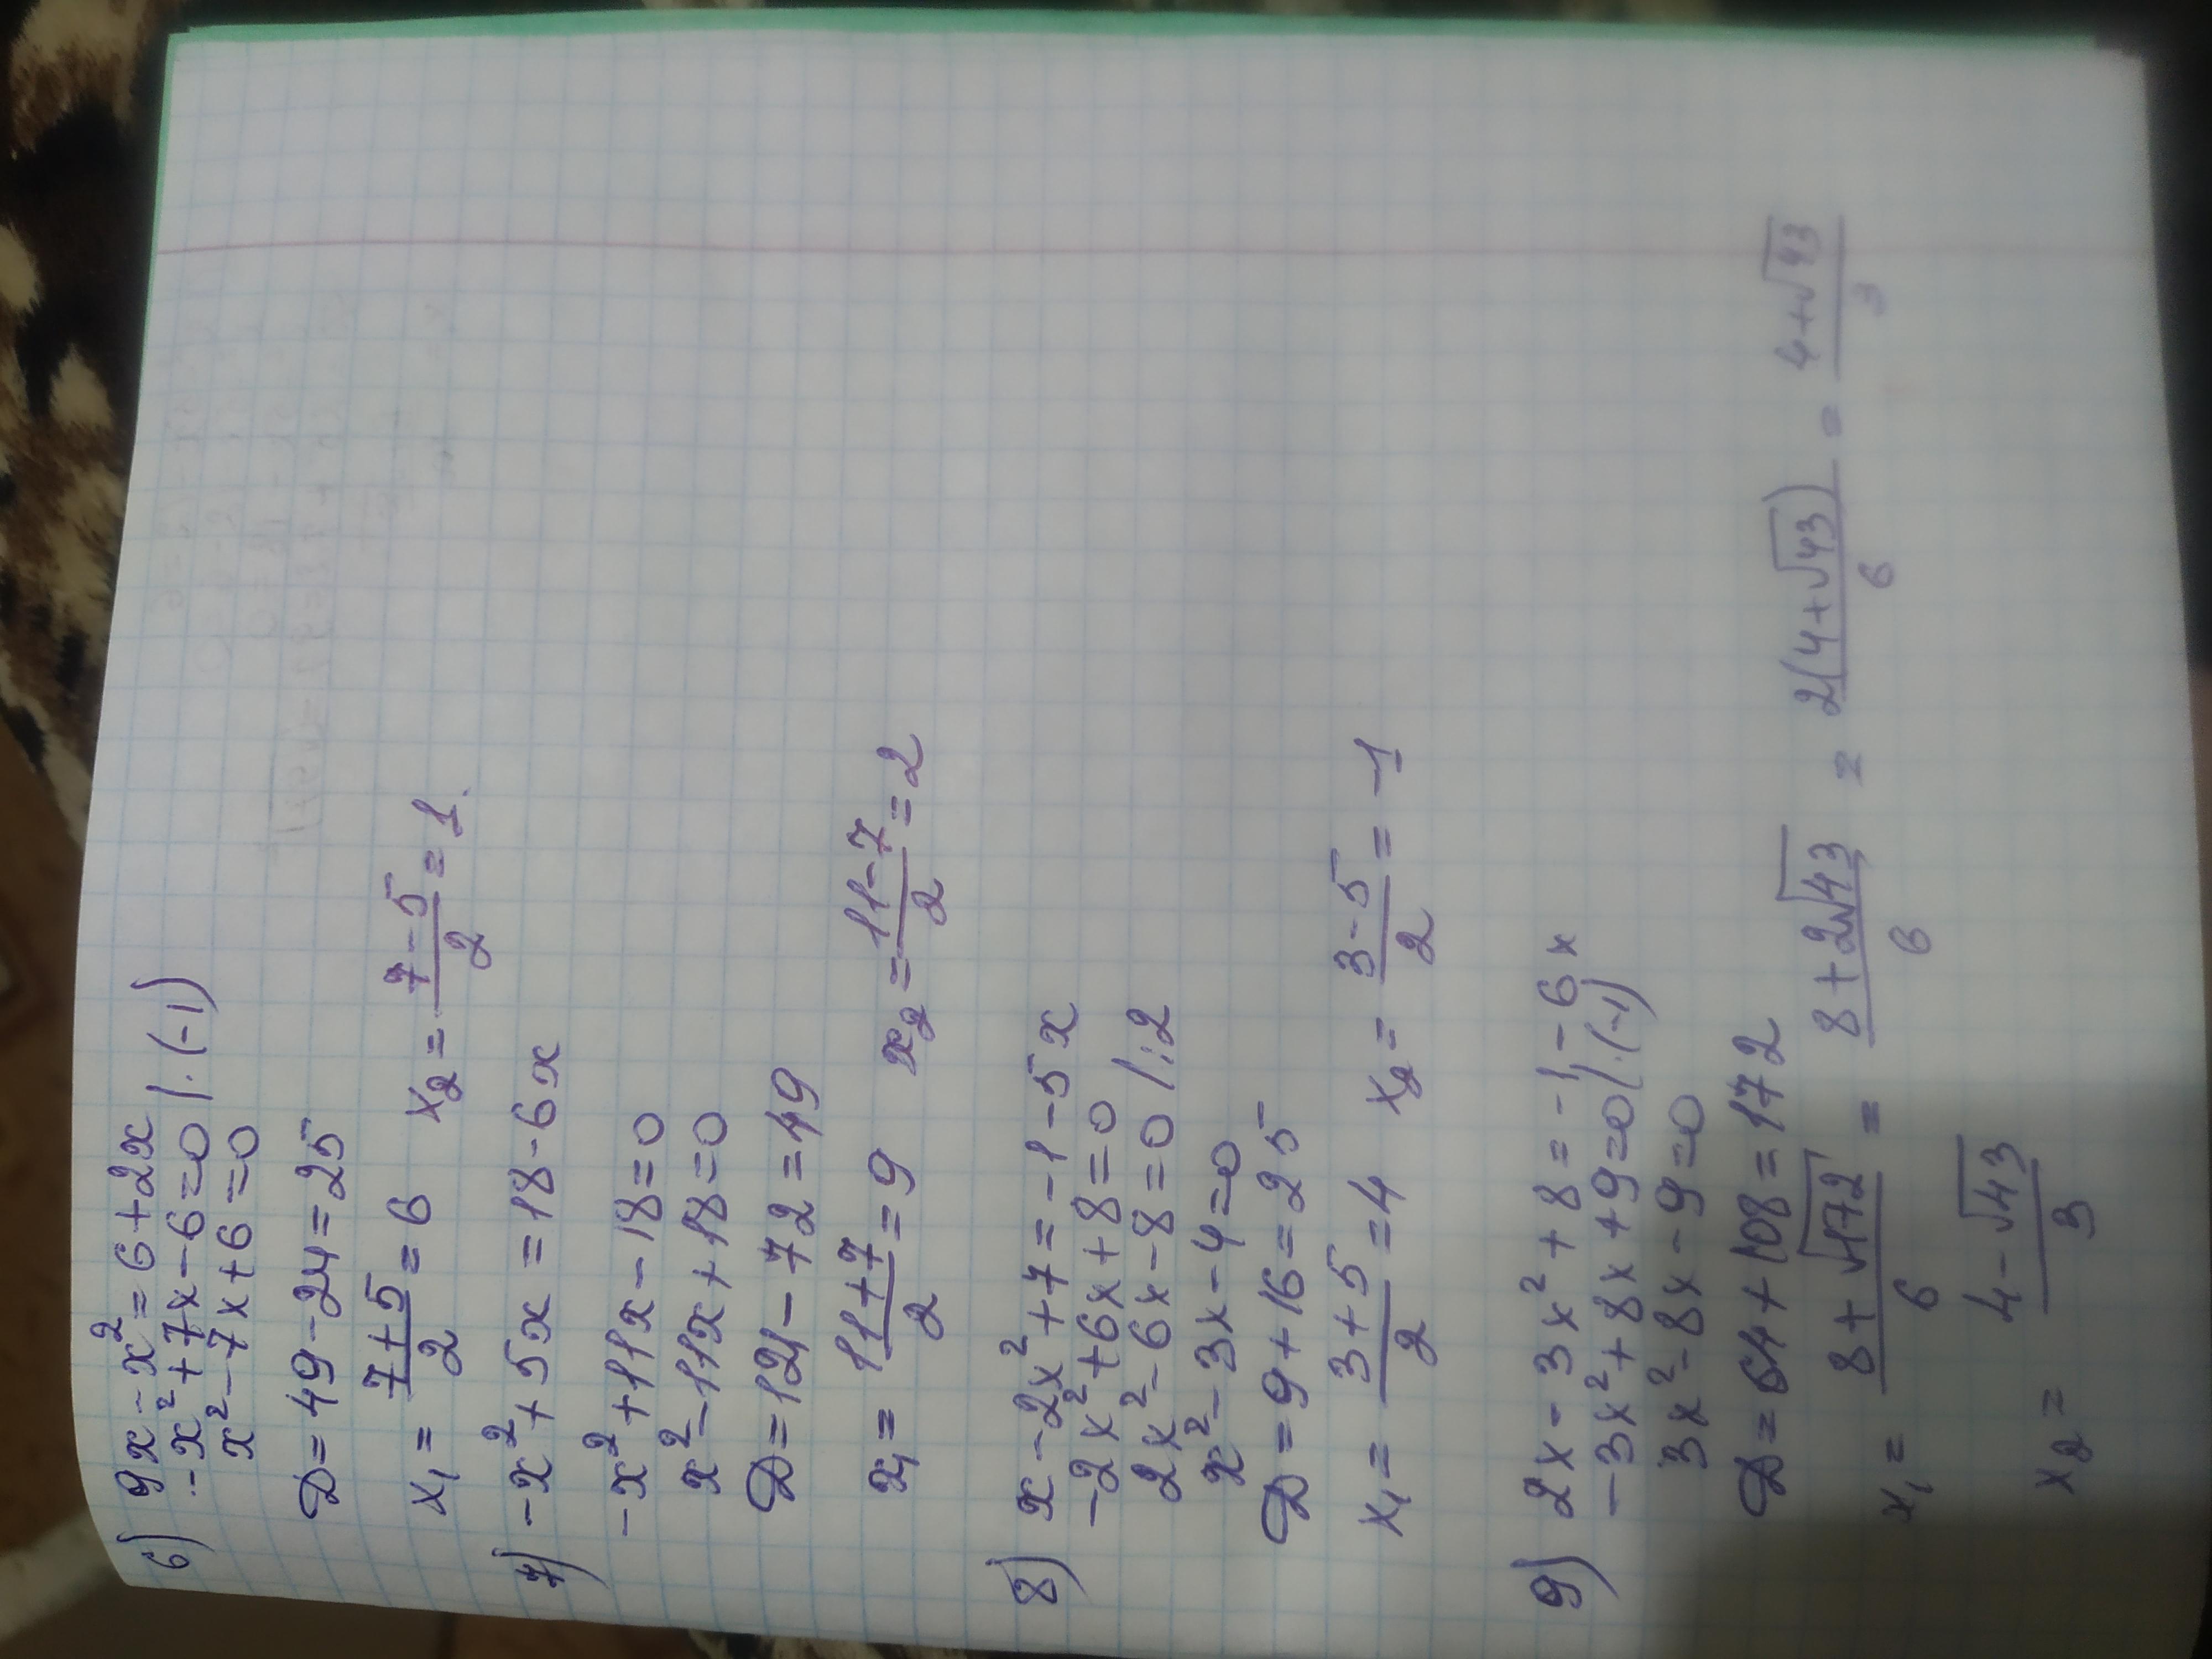 6) 9x - x² = 6 + 2x
-x² + 7x - 6 = 0 | · (-1)
x² - 7x + 6 = 0
D = 49 - 24 = 25
x₁ = (7 + 5)/2 = 6 x₂ = (7 - 5)/2 = 1.
7) -x² + 5x = 18 - 6x
-x² + 11x - 18 = 0
x² - 11x + 18 = 0
D = 121 - 72 = 49
x₁ = (11 + 7)/2 = 9 x₂ = (11 - 7)/2 = 2
8) x - 2x² + 7 = -1 - 5x
-2x² + 6x + 8 = 0
2x² - 6x - 8 = 0 | : 2
x² - 3x - 4 = 0
D = 9 + 16 = 25
x₁ = (3 + 5)/2 = 4 x₂ = (3 - 5)/2 = -1
9) 2x - 3x² + 8 = -1 - 6x
-3x² + 8x + 9 = 0 | · (-1)
3x² - 8x - 9 = 0
D = 64 + 108 = 172
x₁ = (8 + √172)/6 = (8 + 2√43)/6 = 2(4 + √43)/6 = (4 + √43)/3
x₂ = (4 - √43)/3